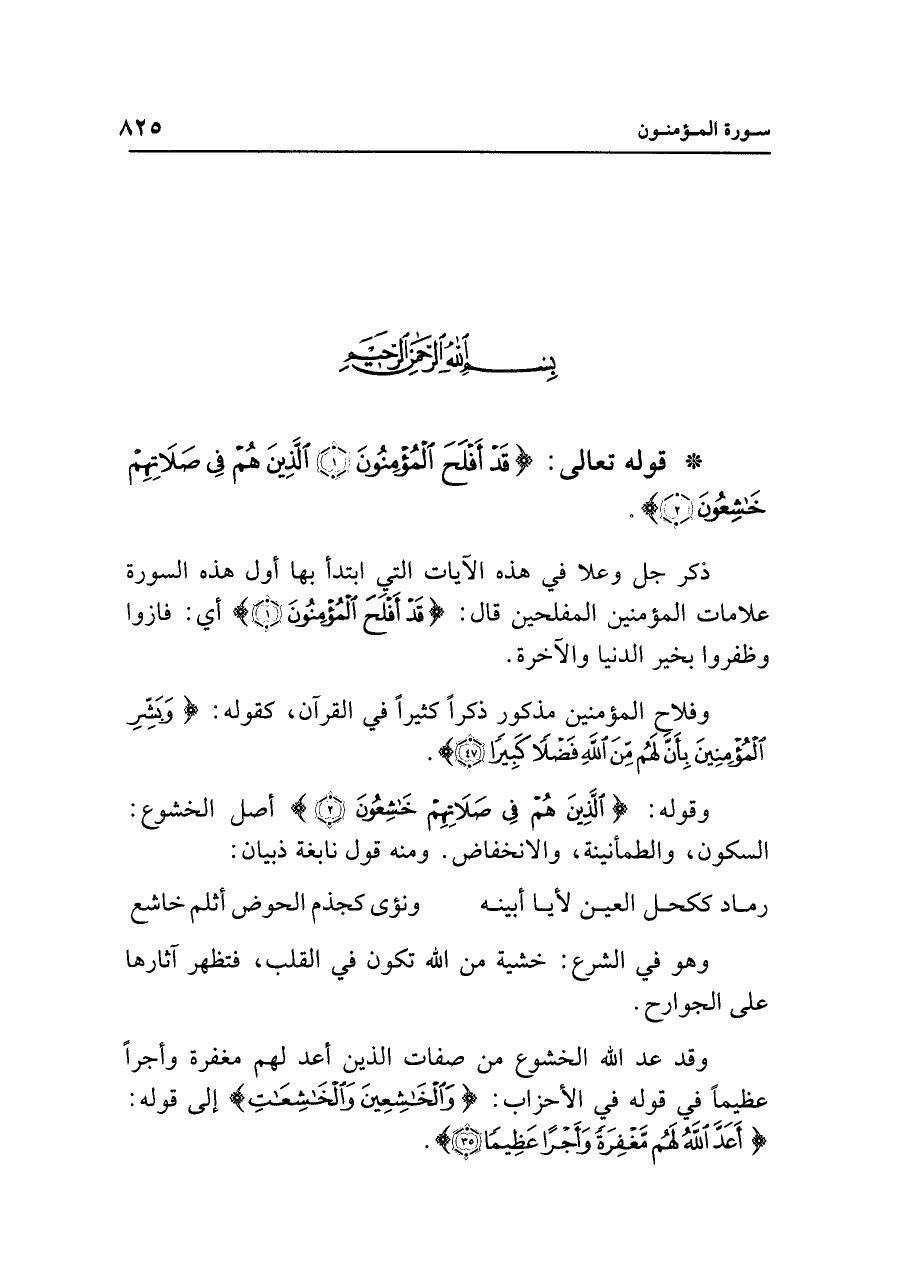 سورة المؤمنون ٨٢٥
بِسْمِ ٱللَّهِ ٱلرَّحْمَٰنِ ٱلرَّحِيمِ
* قوله تعالى: ﴿ قَدْ أَفْلَحَ ٱلْمُؤْمِنُونَ ۝١ ٱلَّذِينَ هُمْ فِى صَلَاتِهِمْ
خَٰشِعُونَ ۝٢﴾.
ذكر جل وعلا في هذه الآيات التي ابتدأ بها أول هذه السورة
علامات المؤمنين المفلحين قال: ﴿قَدْ أَفْلَحَ ٱلْمُؤْمِنُونَ ۝١﴾ أي: فازوا
وظفروا بخير الدنيا والآخرة.
وفلاح المؤمنين مذكور ذكراً كثيراً في القرآن، كقوله: ﴿ وَبَشِّرِ
ٱلْمُؤْمِنِينَ بِأَنَّ لَهُم مِّنَ ٱللَّهِ فَضْلًا كَبِيرًا ۝٤٧﴾.
وقوله: ﴿ ٱلَّذِينَ هُمْ فِى صَلَاتِهِمْ خَٰشِعُونَ ۝٢ ﴾ أصل الخشوع:
السكون، والطمأنينة، والانخفاض. ومنه قول نابغة ذبيان:
رماد ككحل العين لأيا أبينه ونؤى كجذم الحوض أثلم خاشع
وهو في الشرع: خشية من الله تكون في القلب، فتظهر آثارها
على الجوارح.
وقد عد الله الخشوع من صفات الذين أعد لهم مغفرة وأجراً
عظيماً في قوله في الأحزاب: ﴿ وَٱلْخَٰشِعِينَ وَٱلْخَٰشِعَٰتِ﴾ إلى قوله:
﴿ أَعَدَّ ٱللَّهُ لَهُم مَّغْفِرَةً وَأَجْرًا عَظِيمًا ۝٣٥﴾.